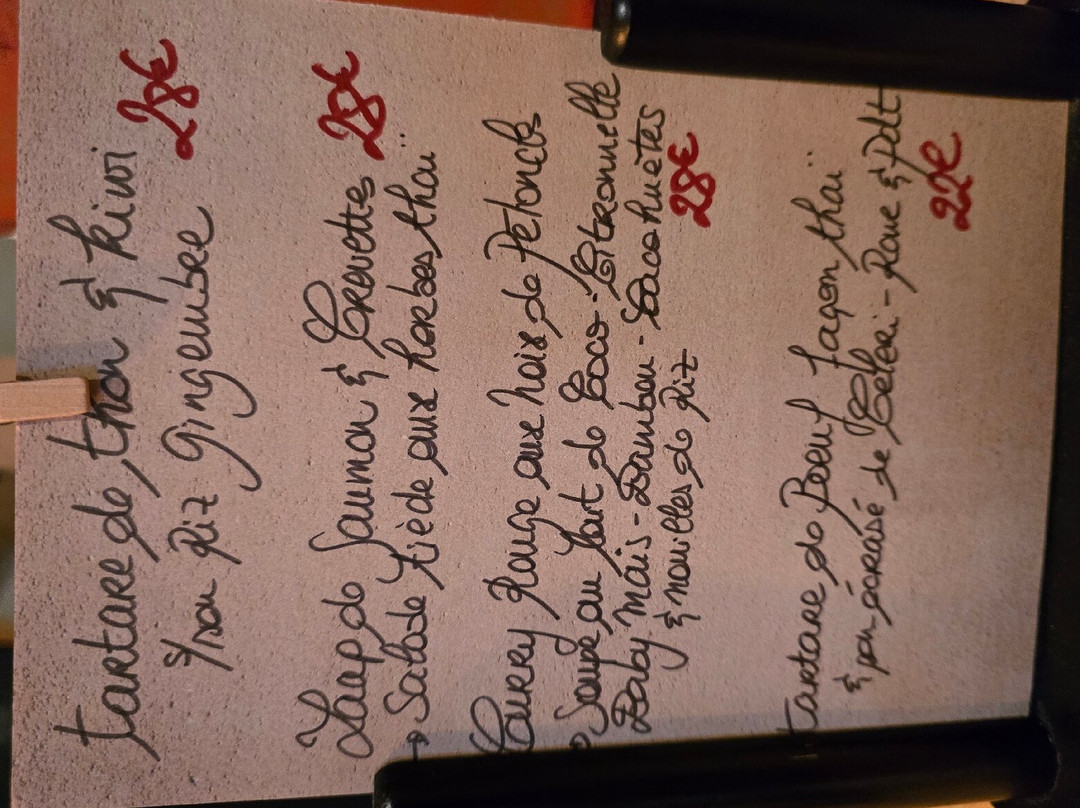 tartare de thon & kiwi
s/son Riz gingembre 28€
Laap de Saumon & Crevettes 28€
→ Salade tiède aux herbes thaï
Curry Rouge aux Noix de Petoncles
→ Soupe au lait de Coco - Citronnelle
Baby maïs - Bambou - Cacahuètes
& nouilles de Riz 28€
tartare de Boeuf façon thaï
& son écrasé de Céleri - Rave & Pdt
22€